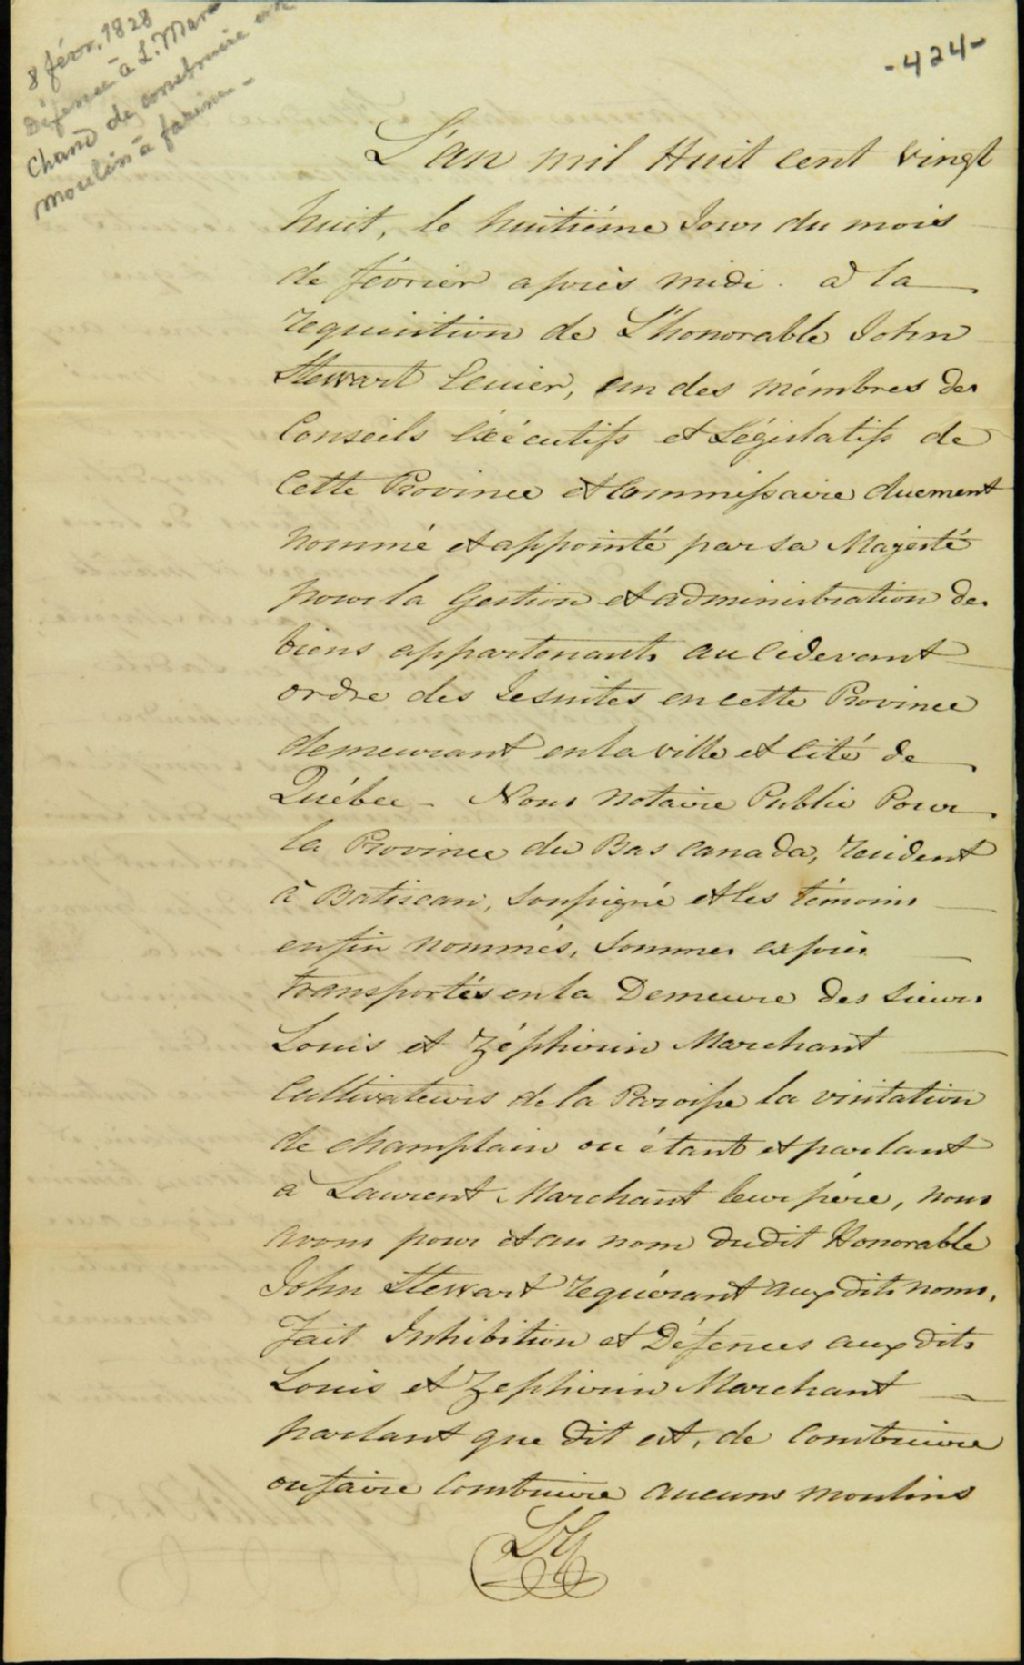 8 févr. 1828
Défense à L. Mar
chand de construire un
moulin à farine -
- 424 -
L'an mil Huit cent vingt
huit, le huitiéme Jour du mois
de février après midi. à la
requisition de L'honorable John
Stewart Ecuier, un des mémbres des
Conseils Exécutifs et Législatifs de
Cette Province et Commissaire duement
nommé et appointé par sa Majesté
pour la Gestion et administration des
biens appartenants au cidevant
ordre des Jesuites en cette Province
demeurant en la ville et cité de
Québec - Nous Notaire Public Pour
la Province du Bas Canada, residant
à Batiscan, soussigné et les témoins
enfin nommés, sommes exprès
transportés en la Demeure des Sieurs
Louis et Zéphirin Marchant
Cultivateurs de la Paroisse la visitation
de champlain ou étant et parlant
a Laurent Marchant leur père, nous
avons pour et au nom dudit Honorable
John Stewart requérant auxdits noms,
Fait Inhibition et Défences auxdits
Louis et Zephirin Marchant
parlant que dit est, de Construire
ou faire Construire aucuns moulins
LG